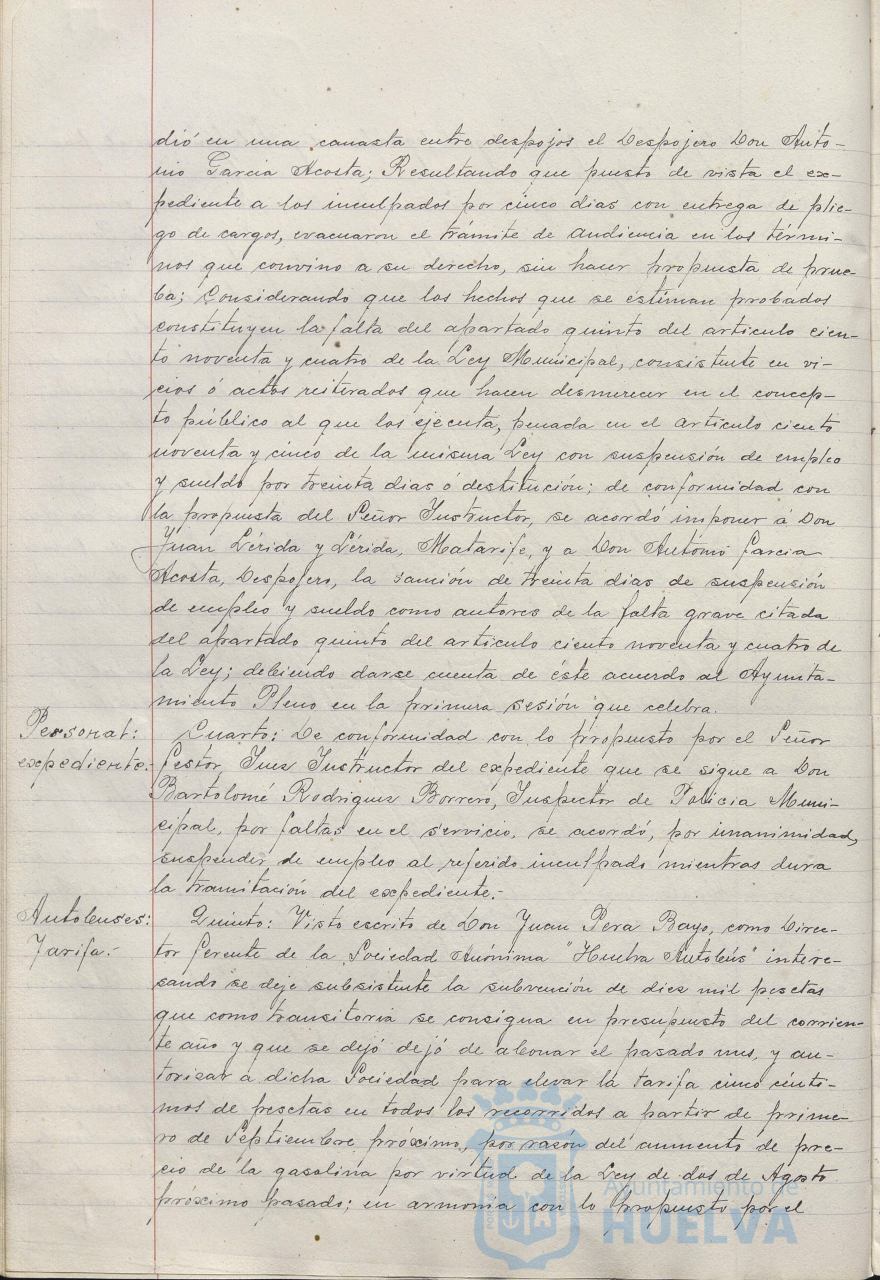 dió en una canasta entre despojos el Despojero Don Anto-
nio Garcia Acosta; Resultando que puesto de vista el ex-
pediente a los inculpados por cinco dias con entrega de plie-
go de cargos, evacuaron el trámite de audiencia en los térmi-
nos que convino a su derecho, sin hacer propuesta de prue-
ba; Considerando que los hechos que se estiman probados
constituyen la falta del apartado quinto del artículo cien-
to noventa y cuatro de la Ley Municipal, consistente en vi-
cios ó actos reiterados que hacen desmerecer en el concep-
to público al que los ejecuta, penada en el artículo ciento
noventa y cinco de la misma Ley con suspensión de empleo
y sueldo por treinta dias ó destitución; de conformidad con
la propuesta del Señor Instructor, se acordó imponer á Don
Juan Lérida y Lérida, Matarife, y a Don Antonio Garcia
Acosta, Despojero, la sanción de treinta dias de suspensión
de empleo y sueldo como autores de la falta grave citada
del apartado quinto del artículo ciento noventa y cuatro de
la Ley; debiendo darse cuenta de éste acuerdo al Ayunta-
miento Pleno en la primera sesión que celebra.
Personal:
expediente.-
Cuarto: De conformidad con lo propuesto por el Señor
Gestor, Juez Instructor del expediente que se sigue a Don
Bartolomé Rodriguez Borrero, Inspector de Policia Muni-
cipal, por faltas en el servicio, se acordó, por unanimidad,
suspender de empleo al referido inculpado mientras dura
la tramitación del expediente.-
Autobuses:
Tarifa.-
Quinto: Visto escrito de Don Juan Pera Bayo, como Direc-
tor Gerente de la Sociedad Anónima "Huelva Autobús" intere-
sando se deje subsistente la subvención de diez mil pesetas
que como transitoria se consigna en presupuesto del corrien-
te año y que se dejó dejó de abonar el pasado mes, y au-
torizar a dicha Sociedad para elevar la tarifa cinco cénti-
mos de pesetas en todos los recorridos a partir de prime-
ro de Septiembre próximo, por razón del aumento de pre-
cio de la gasolina por virtud de la Ley de dos de Agosto
próximo pasado; en armonia con lo propuesto por el
Ayuntamiento de
HUELVA